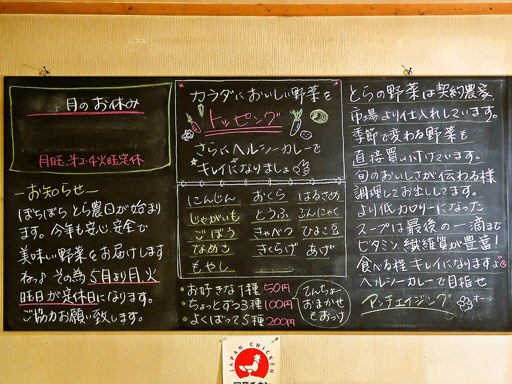 月のお休み
月曜、第2・4火曜定休
お知らせ
ぼちぼちとら農日が始まり
ます。今年も安心、安全で
美味しい野菜をお届けします
ねっ♪ その為 5月より月、火
曜日が定休日になります。
ご協力お願い致します。
カラダにおいしい野菜を
トッピング
さらにヘルシーカレーで
キレイになりましょ
にんじん おくら はるさめ
じゃがいも とうふ こんにゃく
ごぼう きゃべつ ひよこ豆
なめこ きくらげ あげ
もやし
・お好きな1種 50円
・ちょっとずつ3種 100円
・よくばって5種 200円
てんちょー
おまかせ
とらの野菜は契約農家、
市場より仕入れしています。
季節で変わる野菜も
直接買い付けています。
旬のおいしさが伝わる様
調理してお出ししてます。
より低カロリーになった
スープは最後の一滴まで
ビタミン繊維質が豊富!
食べる程キレイになりますよ
ヘルシーカレーで目指せ
アンチエイジング オーッ
JAPAN CHICKEN
国産チキン